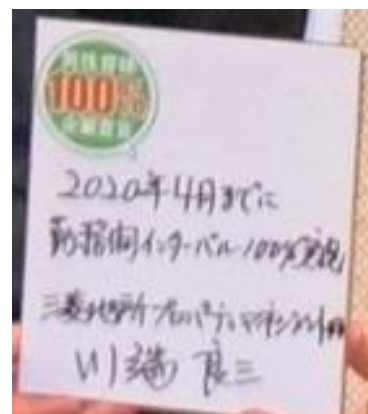 100%
2020年4月までに
勤務間インターバル100%実現
三菱地所プロパティマネジメント㈱
川端 良三